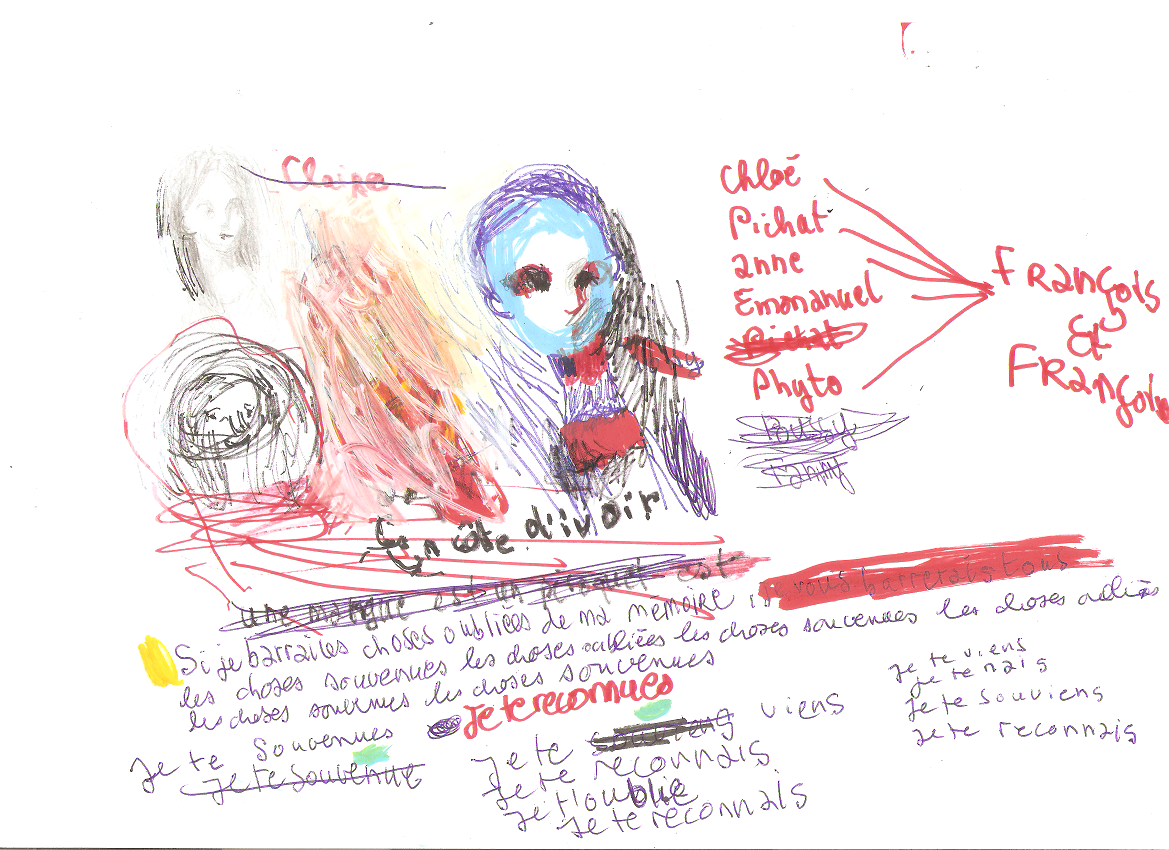 Claire
Chloé
Pichat
anne
Emmanuel
Pichat
Phyto
Fanny
François
&
François
En côte d'ivoir
une mangue est un perroquet est
Si je barrais les choses oubliées de ma mémoire : je vous barrerais tous
les choses souvenues les choses oubliées les choses souvenues les choses oubliées
les choses souvenues les choses souvenues
Je te reconnues
Je te souvenues
Je te souvenue
Je te viens
Je te reconnais
Je t'oublie
Je te reconnais
Je te viens
Je te nais
Je te souviens
Je te reconnais